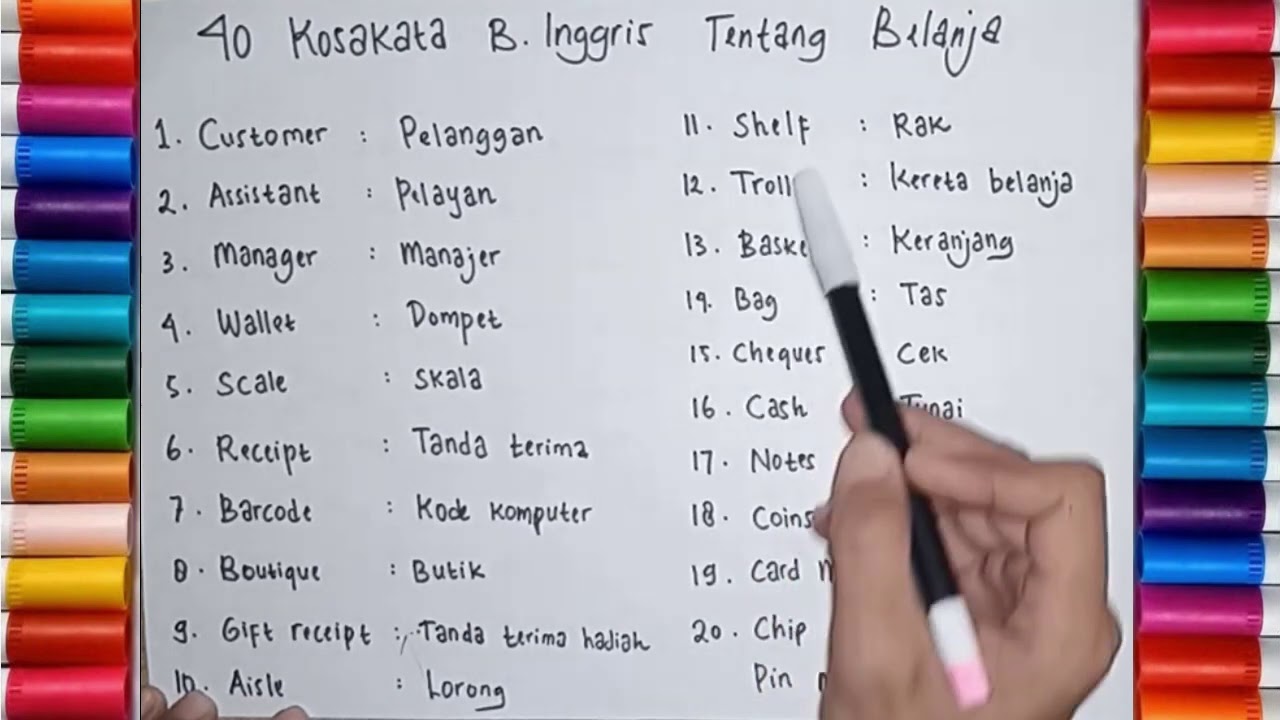 40 Kosakata B. Inggris Tentang Belanja
1. Customer : Pelanggan
2. Assistant : Pelayan
3. Manager : Manajer
4. Wallet : Dompet
5. Scale : Skala
6. Receipt : Tanda terima
7. Barcode : Kode komputer
8. Boutique : Butik
9. Gift receipt : Tanda terima hadiah
10. Aisle : Lorong
11. Shelf : Rak
12. Troll : Kereta belanja
13. Baske : Keranjang
14. Bag : Tas
15. Cheques Cek
16. Cash Tunai
17. Notes
18. Coins
19. Card
20. Chip
Pin